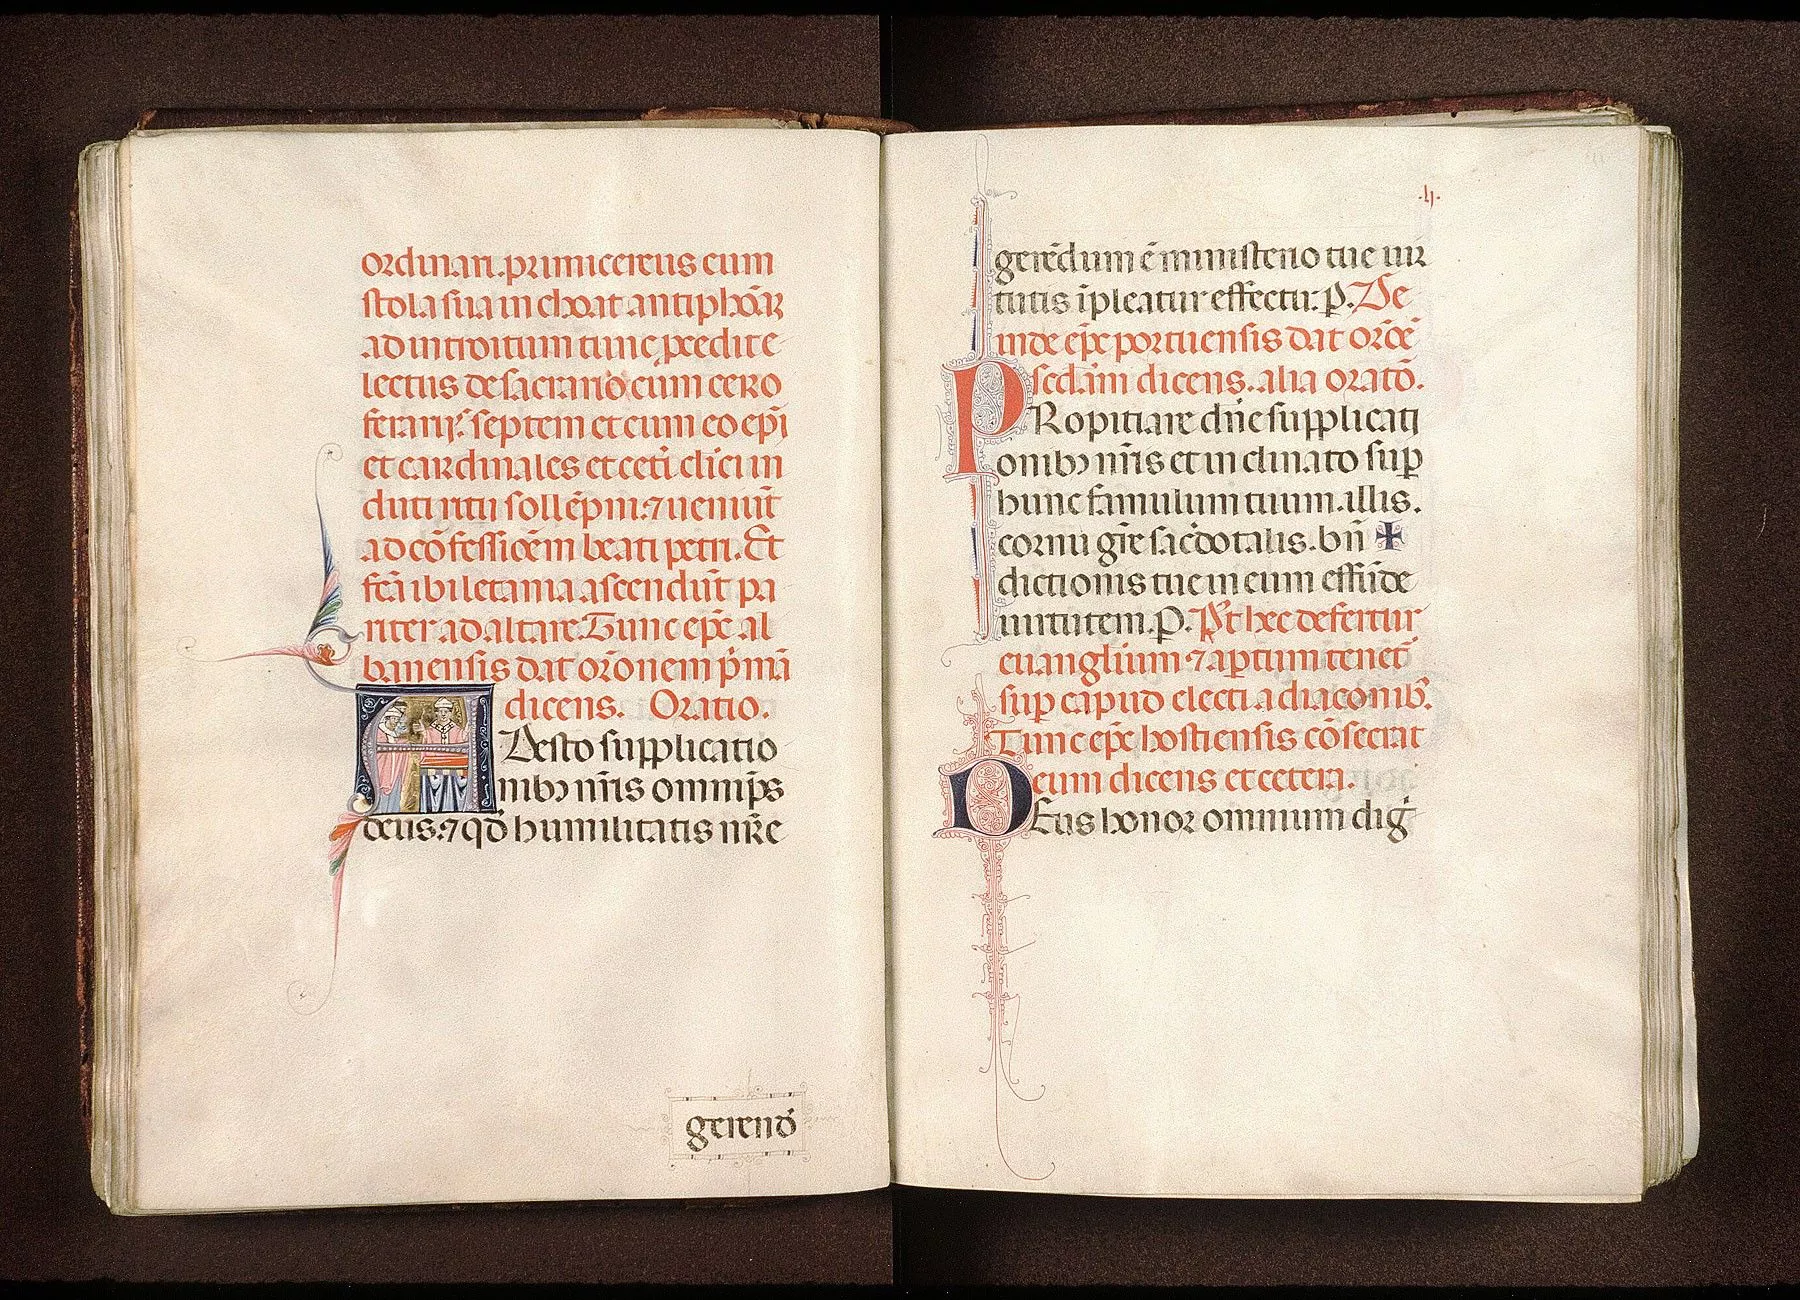 ordinari. primicereus cum
stola sua inchoat antiphoã
ad introitum tunc p̃edict e
lectus de sacrario cum cero
ferarijs septem et cum eo ep̃i
et cardinales et cet̃i cl̃ici in
duti ritu sollẽpni. ⁊ ueniũt
ad cõfessiõem beati petri. Et
fc̃a ibi letania ascendũt pa
riter ad altare. Tunc ep̃c al
banensis dat or̃onem p̃mã
dicens. Oratio.
Adesto supplicatio
nibꝫ nr̃is omnip̃s
deus. ⁊ qđ humilitatis nr̃e
gerenđ
.lj.
gerẽdum ẽ ministerio tue uir
tutis ĩpleatur effectu: P. De
inde ep̃c portuensis dat or̃oẽ
sc̃dam dicens. alia orat̃o.
PRopitiare dñe supplicati
onibꝫ nr̃is et inclinato suꝑ
hunc famulum tuum. illis.
cornu gr̃e sac̃dotalis. bñ ✠
dictionis tue in eum effũde
uirtutem. P. P̃t hec defertur
euanglium ⁊ aꝑtum tenet̃
suꝑ capud electi a diaconibꝫ.
Tunc ep̃c hostiensis cõsecrat
eum dicens et cetera.
DEus honor omnium dig̃